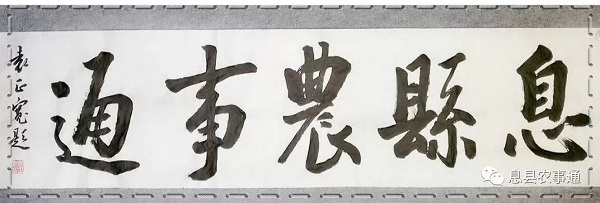 息縣農事通
袁正寬題
息县农事通